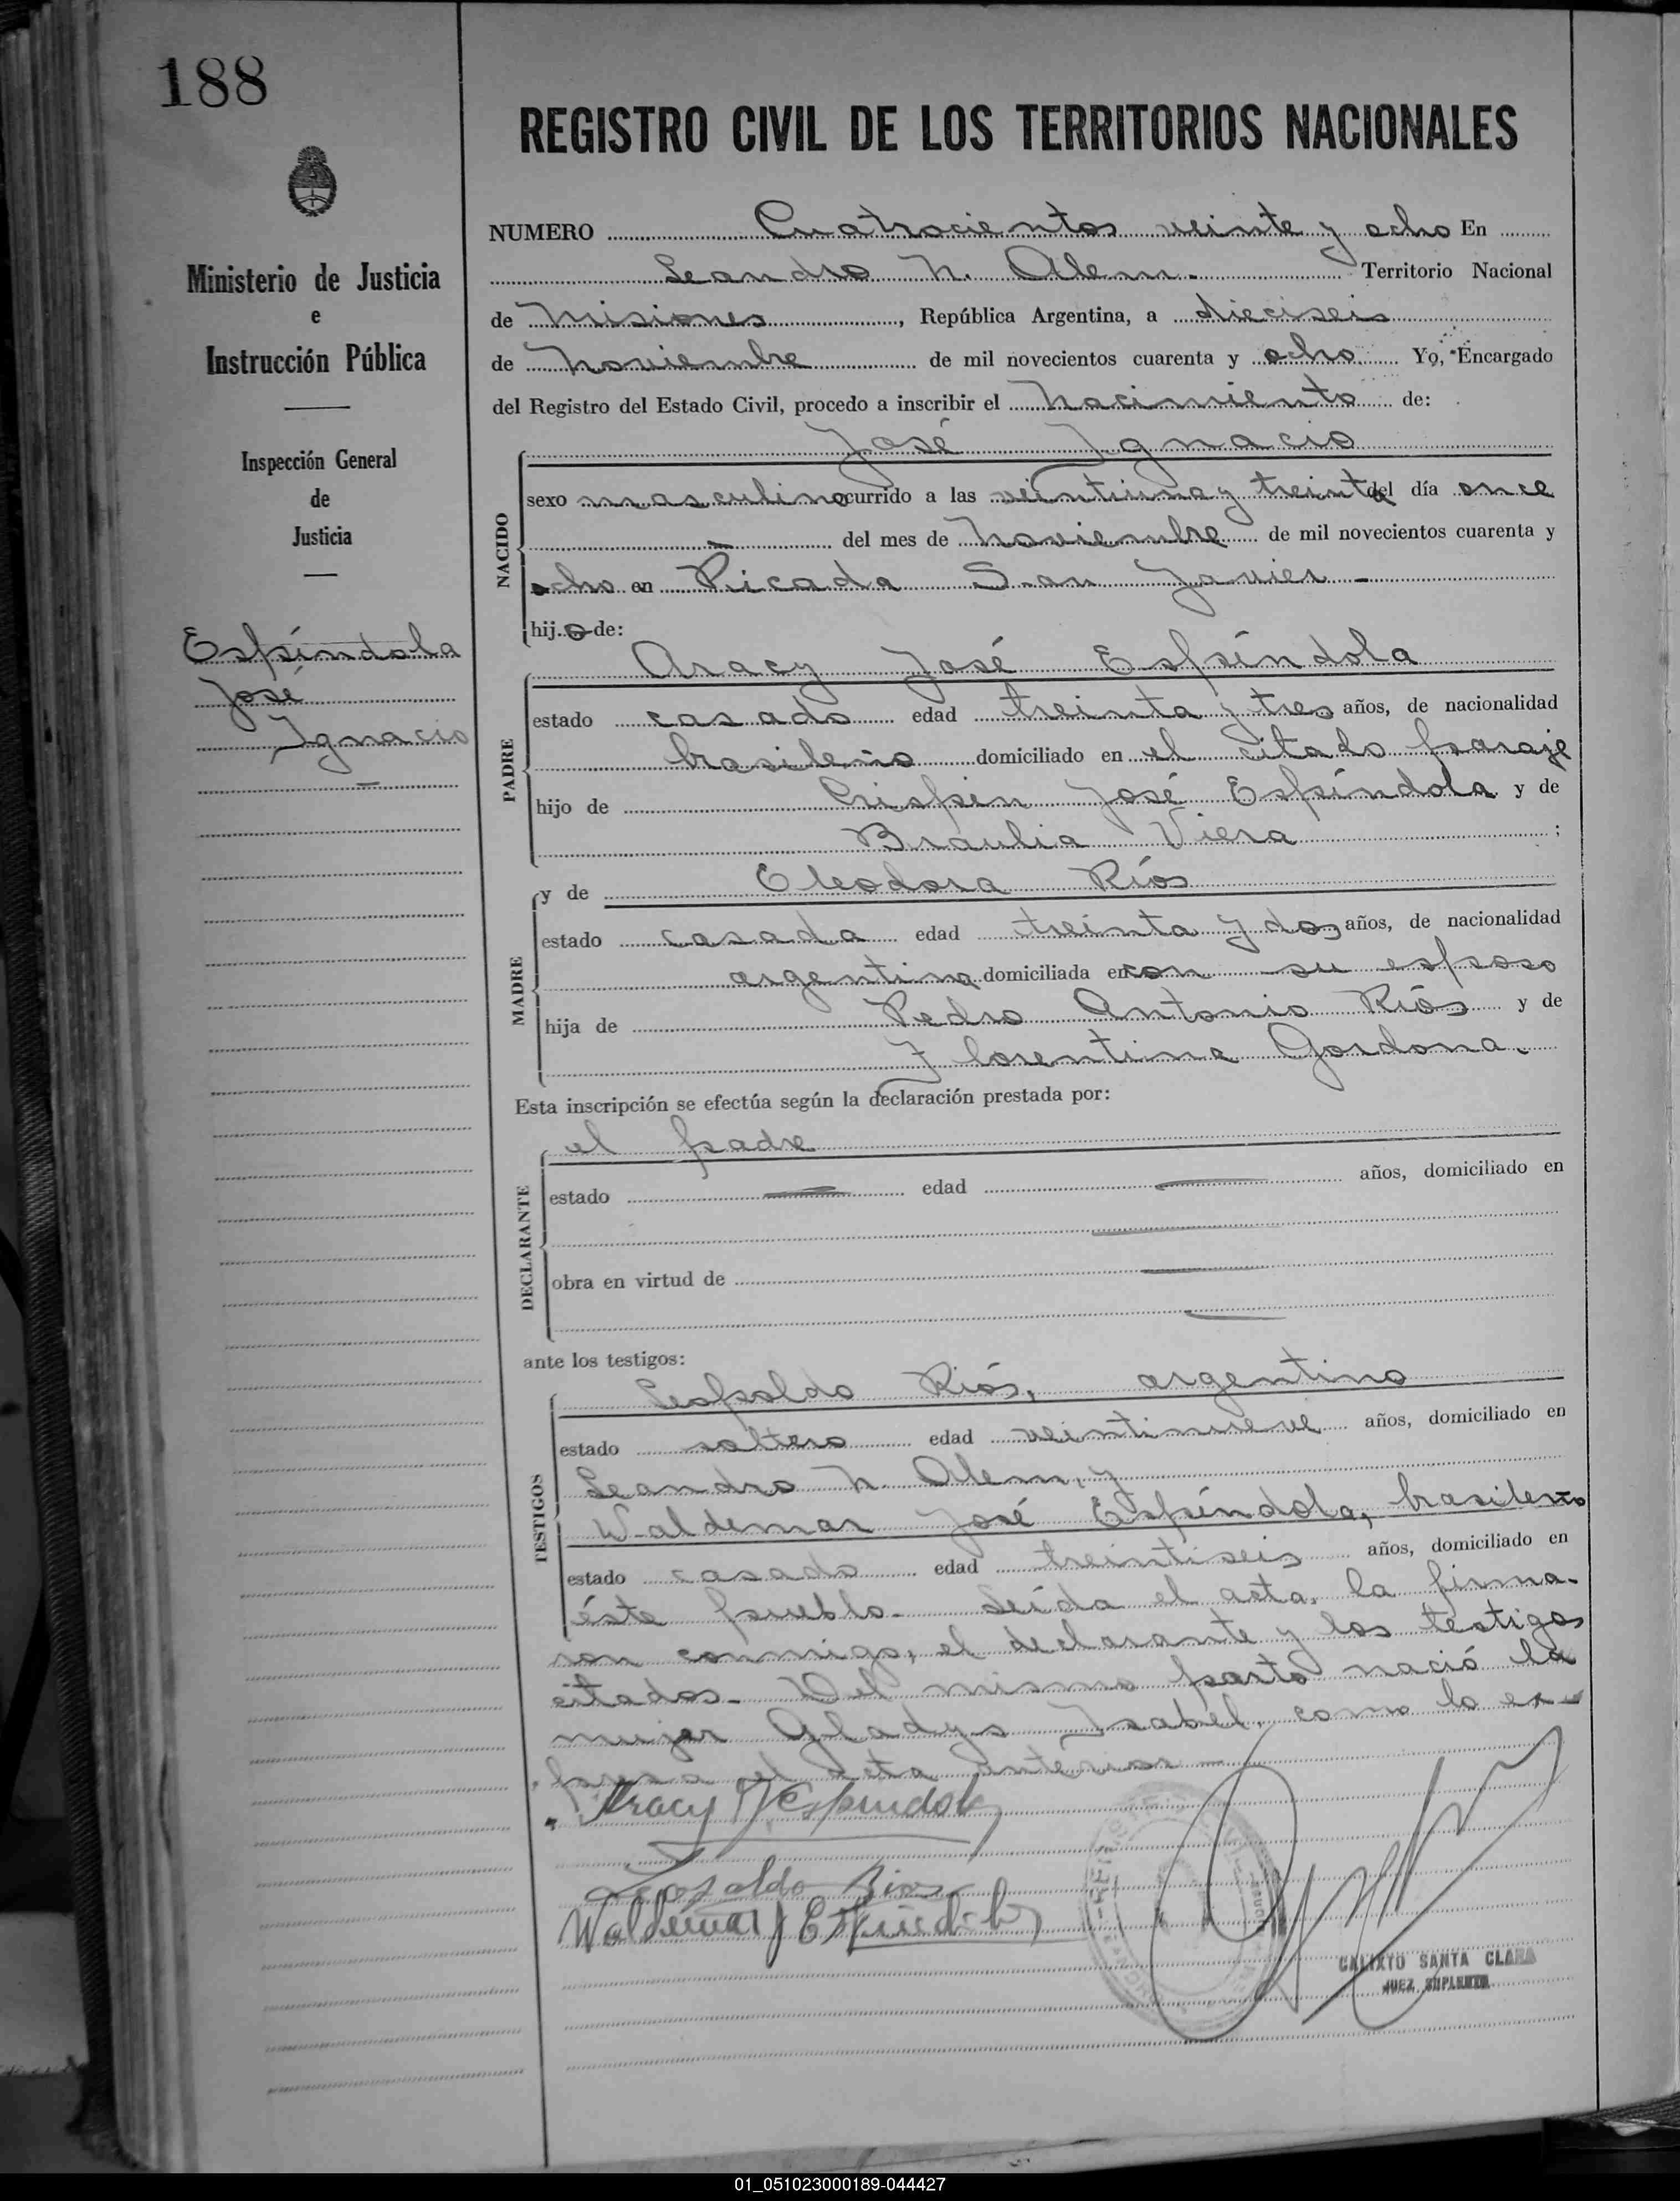 188
REGISTRO CIVIL DE LOS TERRITORIOS NACIONALES
Ministerio de Justicia
e
Instrucción Pública
Inspección General
de
Justicia
Espíndola
José
Ignacio
NUMERO Cuatrocientos veinte y ocho En
Leandro N. Alem. Territorio Nacional
de Misiones, República Argentina, a dieciseis
de Noviembre de mil novecientos cuarenta y ocho Yo, Encargado
del Registro del Estado Civil, procedo a inscribir el Nacimiento de:
José Ignacio
NACIDO
sexo masculino ocurrido a las veintiuna y treinta del día once
del mes de Noviembre de mil novecientos cuarenta y
ocho en Picada San Javier -
hijo de:
PADRE
Aracy José Espíndola
estado casado edad treinta y tres años, de nacionalidad
brasileño domiciliado en el citado paraje
hijo de Crispin José Espíndola y de
Braulia Viera ;
MADRE
y de Eleodora Ríos
estado casada edad treinta y dos años, de nacionalidad
argentina domiciliada en con su esposo
hija de Pedro Antonio Ríos y de
Florentina Gordona.
Esta inscripción se efectúa según la declaración prestada por:
DECLARANTE
el padre
estado — edad — años, domiciliado en
obra en virtud de —
ante los testigos:
TESTIGOS
Leopoldo Ríos, argentino
estado soltero edad veintinueve años, domiciliado en
Leandro N. Alem, y
Waldemar José Espíndola, brasileño
estado casado edad treintiseis años, domiciliado en
éste pueblo. Leída el acta, la firma-
ron conmigo, el declarante y los testigos
citados. Del mismo parto nació la
mujer Gladys Isabel, como lo ex-
presa el acta anterior -
Aracy J Espindola
Leopoldo Rios
Waldemar J Espindola
CALIXTO SANTA CLARA
JUEZ SUPLENTE
01_051023000189-044427